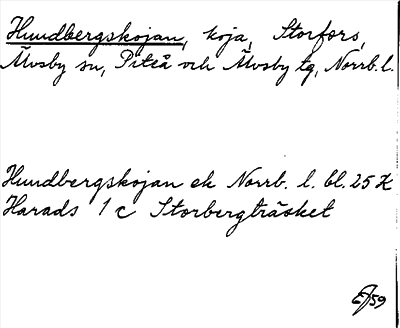 Hundbergskojan, koja, Storfors,
Älvsby sn, Piteå och Älvsby tg, Norrb. l.
Hundbergskojan ek Norrb. l. bl. 25 K
Harads 1 c Storbergträsket
59